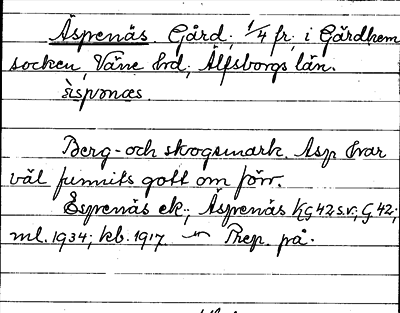 Äspenäs. Gård, 1/4 fr, i Gärdhem
socken, Väne hrd, Älfsborgs län.
Berg- och skogsmark. Asp har
väl funnits gott om förr.
Espenäs ek.; Äspenäs KG42 s.v.; G.42;
ml. 1934; kb. 1917. Prep. på.